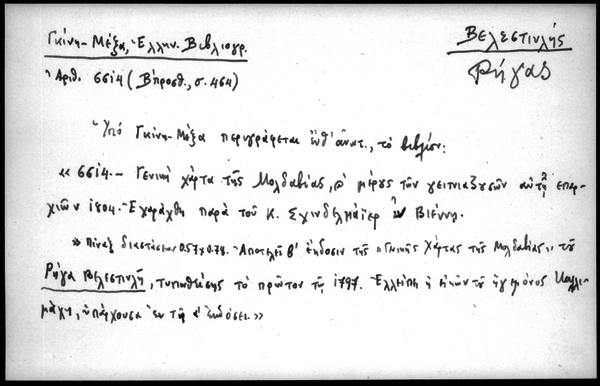 Γκίνη-Μέξα, Ἑλλην. Βιβλιογρ.
Βελεστινλῆς
Ῥήγας
Ἀριθ. 6614 (Β' προσθ., σ. 464)
Ὑπό Γκίνη-Μέξα περιγράφεται ὡς ἄνωτ., τό βιβλίον:
«6614.- Γενική χάρτα τῆς Μολδαβίας, μέρους τῶν γειτνιαζουσῶν αὐτῇ επαρ-
χιῶν 1804. Ἐχαράχθη παρά τοῦ Κ. Σχινδελμάϊερ ἐν Βιέννῃ.
» Πίναξ διαστάσεων 0.57 x 0.78. Ἀποτελεῖ Β' ἔκδοσιν τῆς «Γενικῆς Χάρτας τῆς Μολδαβίας» τοῦ
Ρήγα Βελεστινλῆ, τυπωθείσης τό πρῶτον τῷ 1797. Ἐλλείπει ἡ εἰκών τοῦ ἡγεμόνος Καλλι-
μάχη, ὑπάρχουσα ἐν τῇ α' ἐκδόσει.»